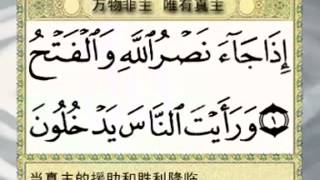 万物非主 唯有真主
إِذَا جَآءَ نَصۡرُ ٱللَّهِ وَٱلۡفَتۡحُ
١ وَرَأَيۡتَ ٱلنَّاسَ يَدۡخُلُونَ
当真主的援助和胜利降临